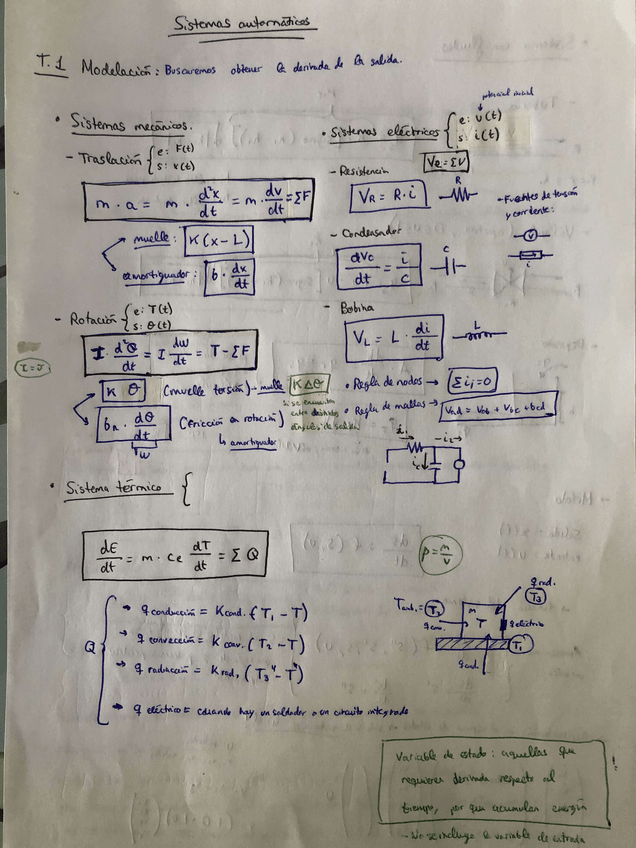 Sistemas automáticos
T.1 Modelación: Buscaremos obtener la derivada de la salida.
• Sistemas mecánicos.
- Traslación { e: F(t)
s: x(t)
m · a = m · d²x/dt = m · dv/dt = ΣF
muelle: K(x - L)
amortiguador: b · dx/dt
- Rotación { e: T(t)
s: θ(t)
I · d²θ/dt = I dw/dt = T - ΣF
K θ (muelle torsión) → muelle K Δθ
si se encuentra
entre
bR · dθ/dt (fricción en rotación)
w
↳ amortiguador
potencial
• Sistemas eléctricos { e: v(t)
s: i(t)
Ve = ΣV
- Resistencia
VR = R · i
R
- Condensador
dVc/dt = i/c
C
- Bobina
VL = L · di/dt
L
- Fuentes de tensión
y corriente:
V
i
• Regla de nodos → Σi¡=0
• Regla de mallas → Vad = Vab + Vbc + bcd
i₁
-i₂→
ic
• Sistema térmico {
dE/dt = m · Ce dT/dt = Σ Q
ρ = m/v
Q
→ q conducción = Kcond. (T₁ - T)
→ q convección = Kconv. (T₂ - T)
→ q radiación = Krad. (T₃⁴ - T⁴)
→ q eléctrico = cuando hay un soldador o un circuito integrado
q rad.
T₃
Tamb. = T₂
M
T
q conv.
q eléctrico
T₁
q cond.
Variable de estado: aquellas que
requieren derivada respecto al
tiempo, por que acumulan energía
!
- No se incluye la variable de entrada